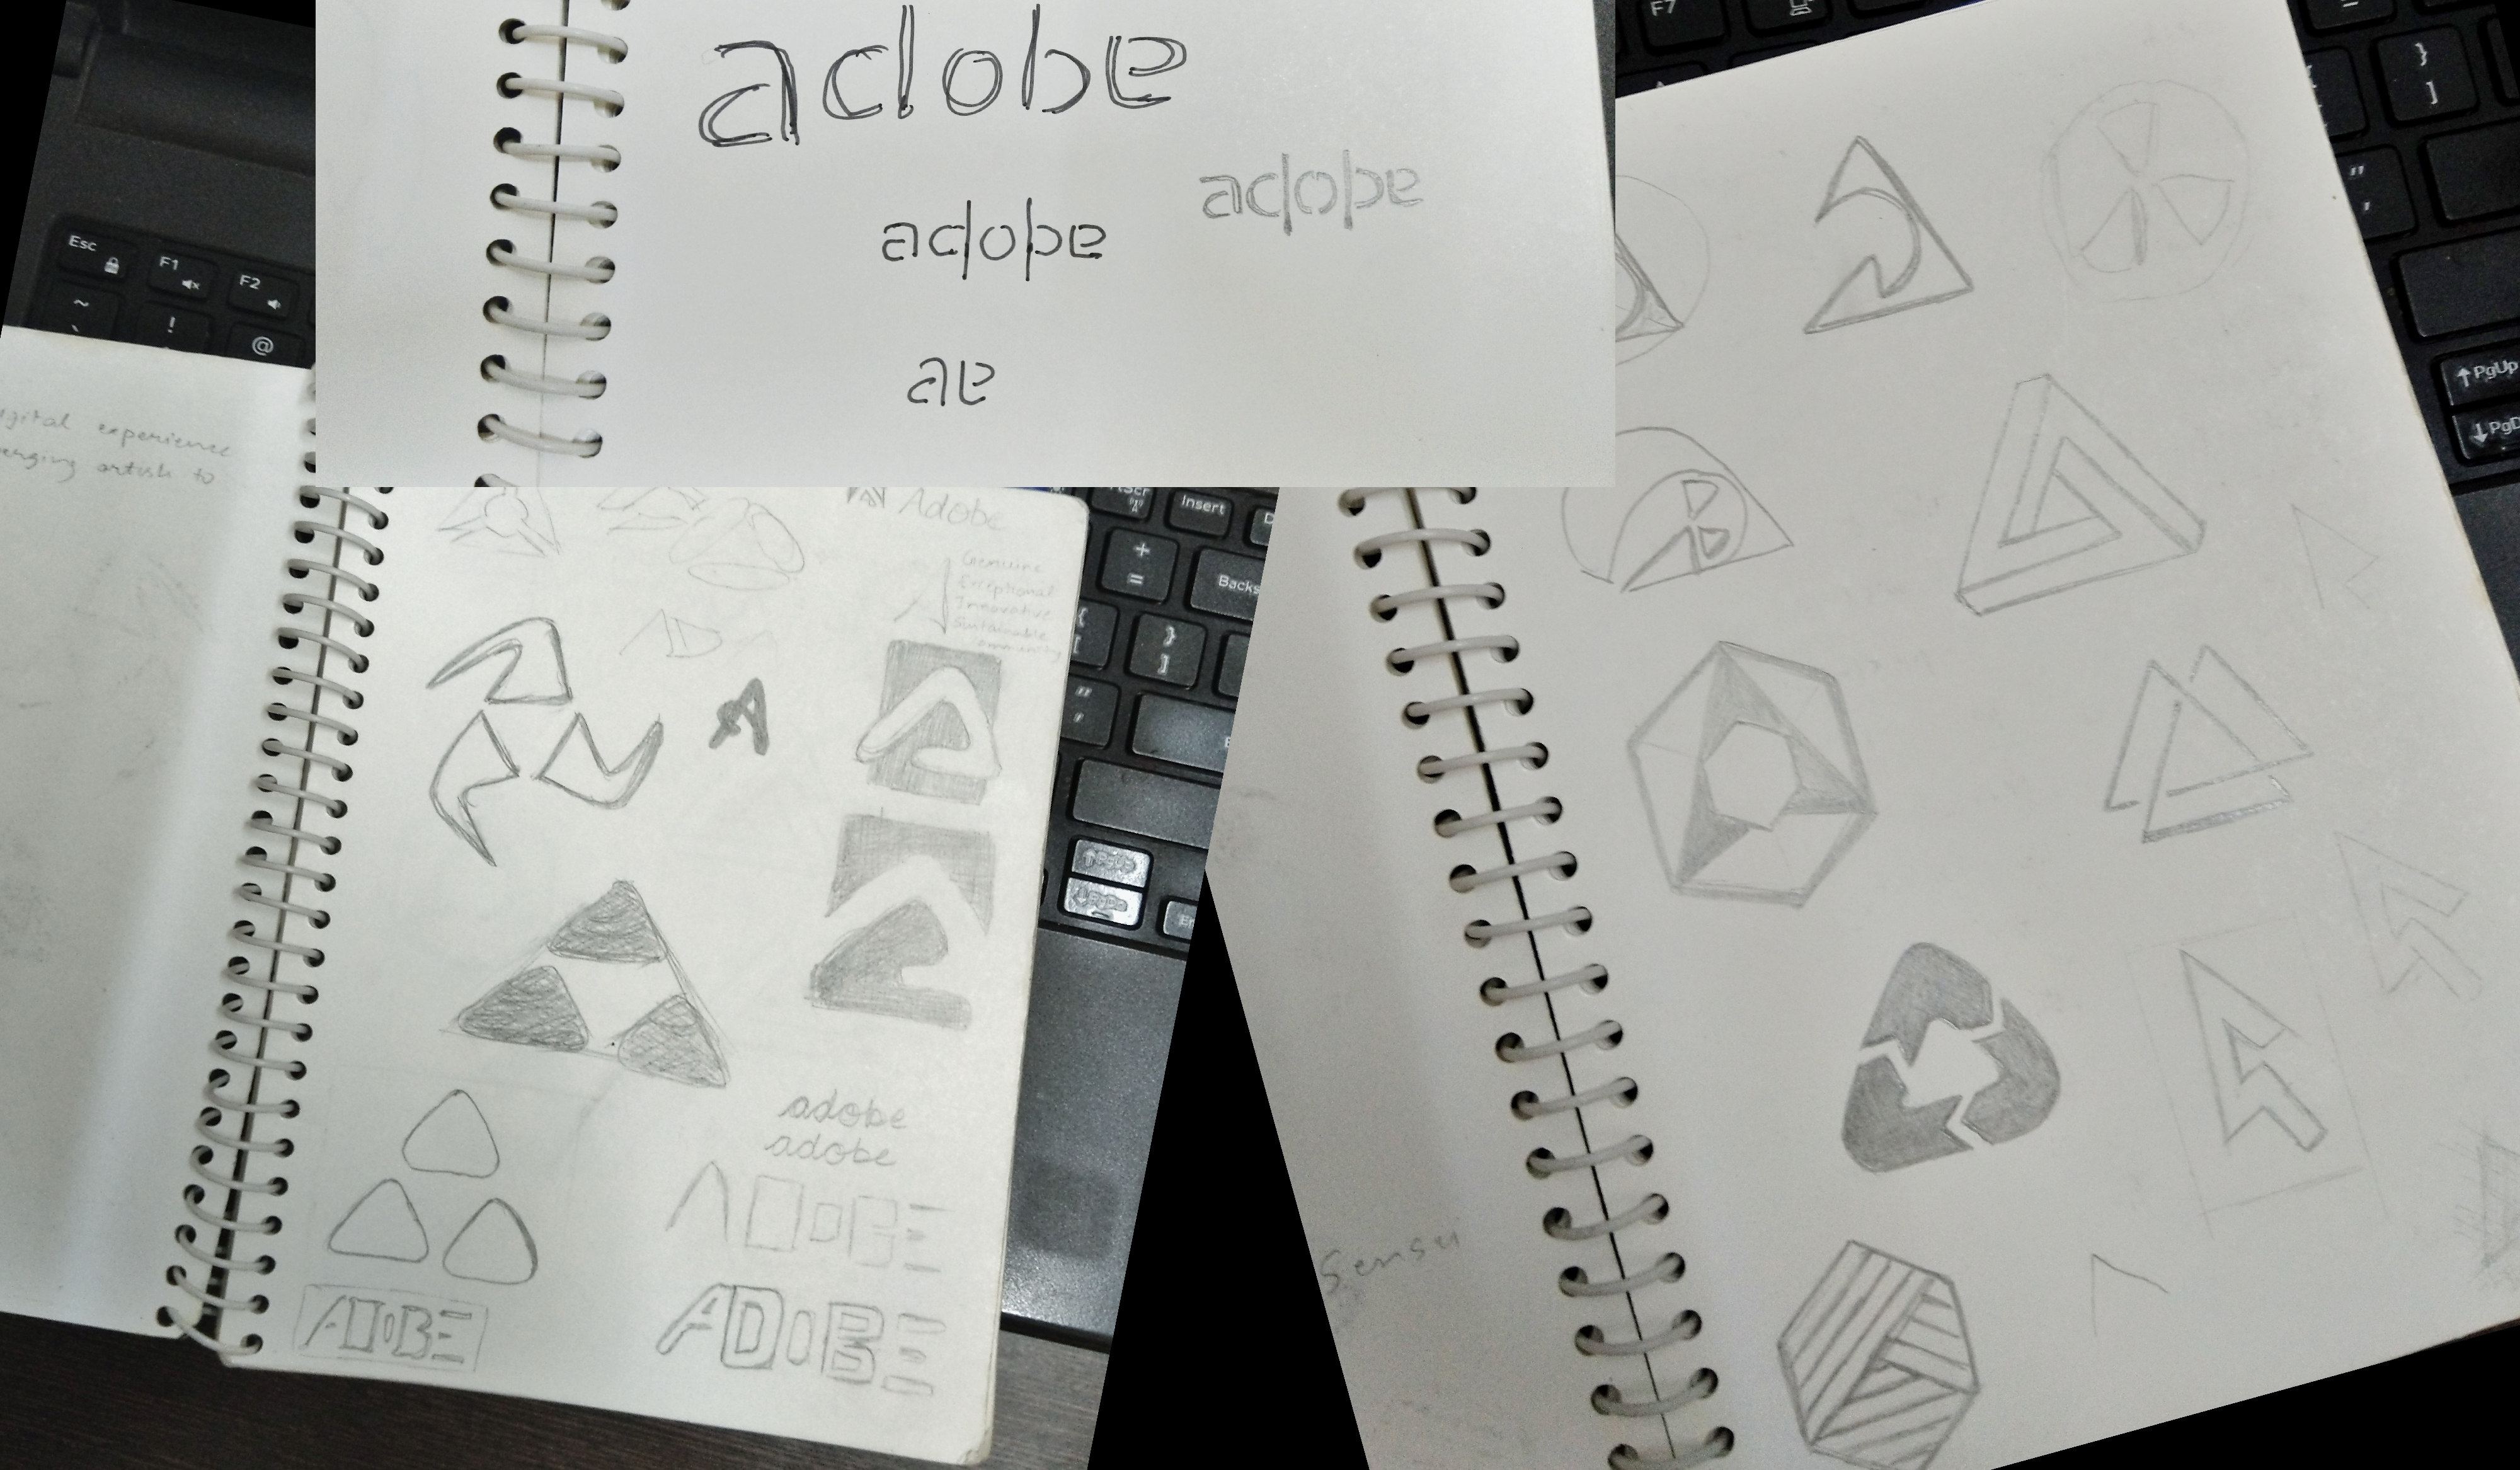 adobe
adobe
adobe
ae
Esc
F1
F2
~
!
@
digital experience
to
Adobe
Genuine
Exceptional
Innovative
Sustainable
community
AD
A
adobe
adobe
ADOBE
ADOBE
ADOBE
Insert
+
=
Backs
{
[
}
]
"
'
F7
}
]
"
'
↑PgUp
↓PgD
Sensei